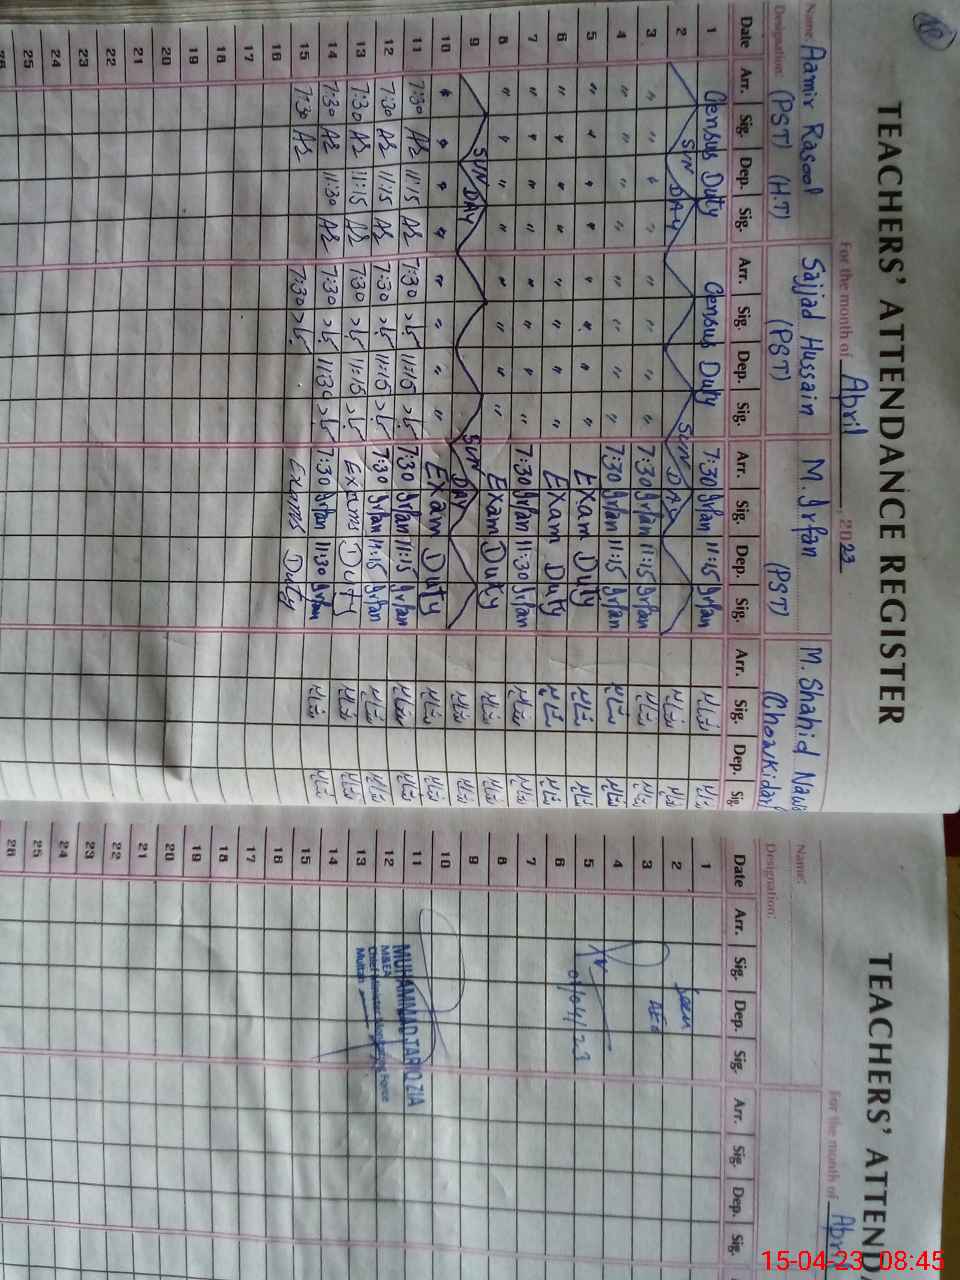 TEACHERS' ATTENDANCE REGISTER
For the month of April, 2023
Name: Aamir Rasool Sajjad Hussain M. Irfan M. Shahid Nawa
Designation: (PST) (H.T) (PST) (PST) (Chowkidar)
Date Arr. Sig. Dep. Sig. Arr. Sig. Dep. Sig. Arr. Sig. Dep. Sig. Arr. Sig. Dep. Sig.
1 Census Duty Census Duty 7:30 Irfan 11:15 Irfan
2 SUNDAY SUNDAY
3 " " " " " " " " 7:30 Irfan 11:15 Irfan
4 " " " " " " " " 7:30 Irfan 11:15 Irfan
5 " " " " " " " " Exam Duty
6 " " " " " " " " Exam Duty
7 " " " " " " " " 7:30 Irfan 11:30 Irfan
8 " " " " " " " " Exam Duty
9 SUNDAY SUN DAY
10 " " " " " " " " Exam Duty
11 7:30 AR 11:15 AR 7:30 11:15 7:30 Irfan 11:15 Irfan
12 7:30 AR 11:15 AR 7:30 11:15 7:30 Irfan 11:15 Irfan
13 7:30 AR 11:15 AR 7:30 11:15 Exams Duty
14 7:30 AR 11:30 AR 7:30 11:30 7:30 Irfan 11:30 Irfan
15 7:30 AR 7:30 Exams Duty
16
17
18
19
20
21
22
23
24
25
26
TEACHERS' ATTENDA
For the month of April
Name:
Designation:
Date Arr. Sig. Dep. Sig. Arr. Sig. Dep. Sig.
1
2 Seen
3 AEO
4
5
6
7
8
9
10
11 MUHAMMAD TARIQ ZIA
12 M&EA
Chief Minister Monitoring Force
13 Multan
14
15
16
17
18
19
20
21
22
23
24
25
26
15-04-23 08:45